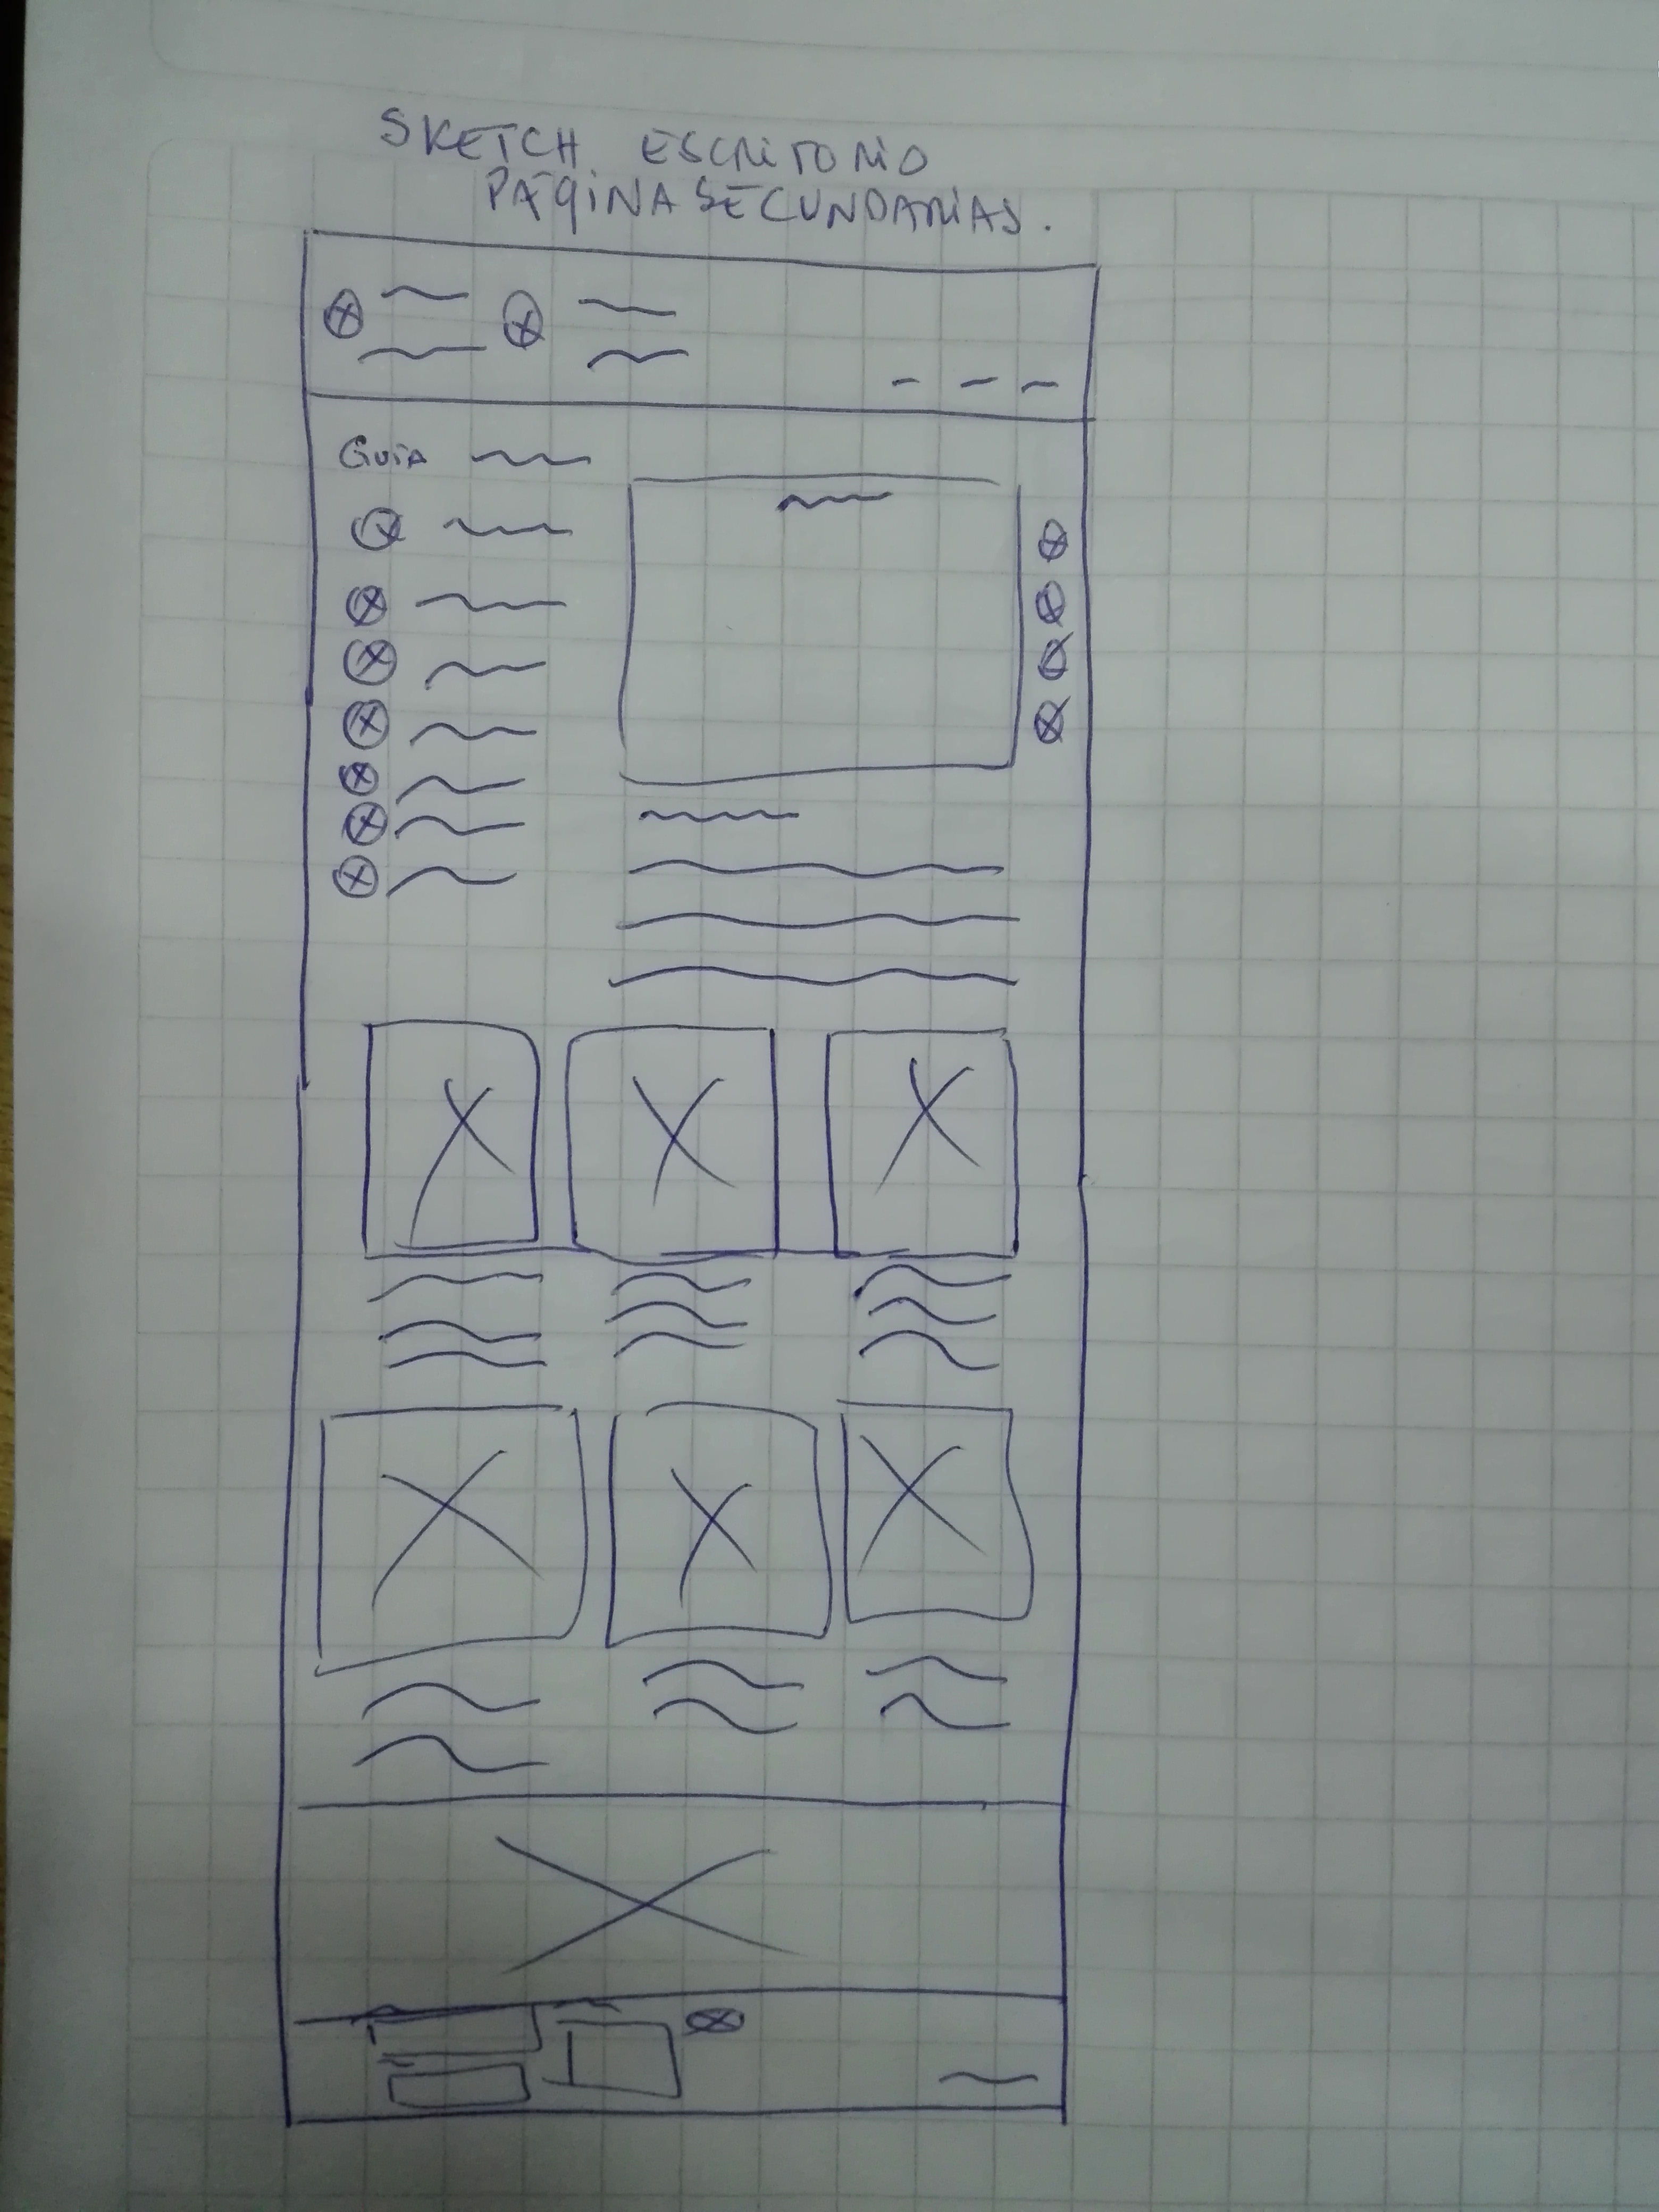 SKETCH ESCRITORIO
PÁGINA SECUNDARIAS.
GUIA